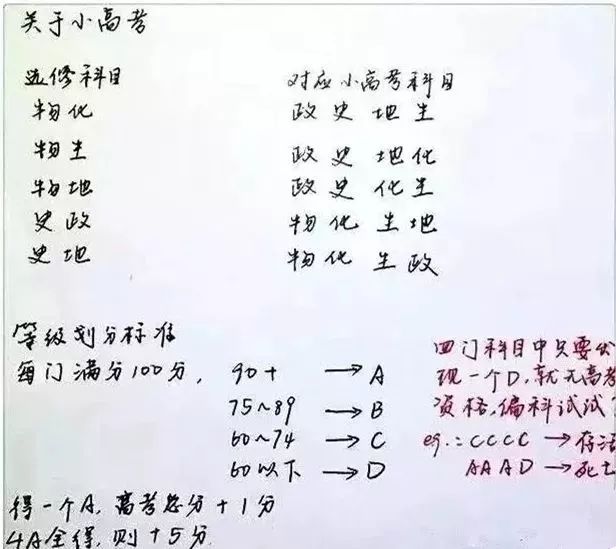 关于小高考
选修科目 对应小高考科目
物化 政史地生
物生 政史地化
物地 政史化生
史政 物化生地
史地 物化生政
等级划分标准
每门满分100分, 90+ → A
75~89 → B
60~74 → C
60以下 → D
四门科目中只要出
现一个D,就无高考
资格,偏科试试?
eg.: CCCC → 存活
AAAD → 死亡
得一个A,高考总分+1分
4A全得,则+5分